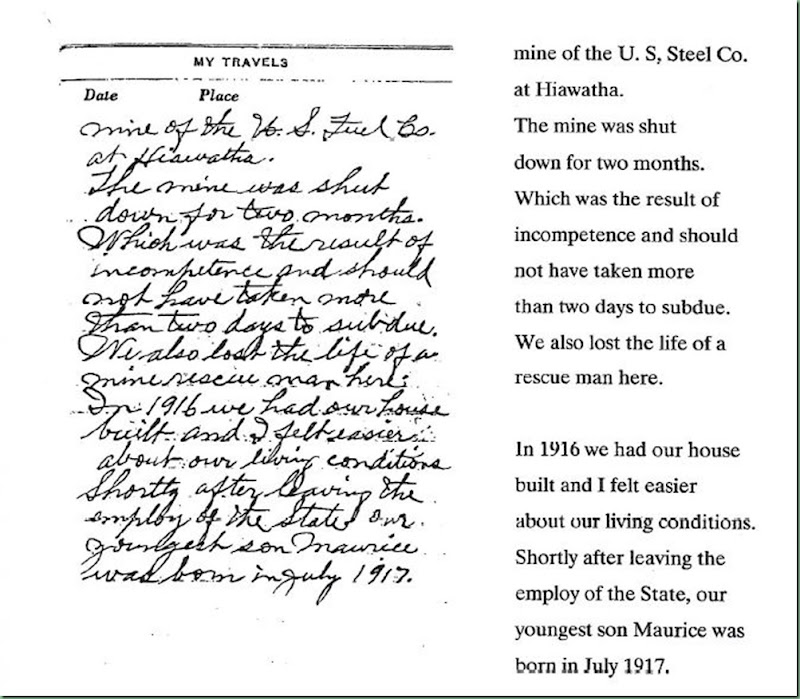 MY TRAVELS
Date Place
mine of the U. S. Fuel Co.
at Hiawatha.
The mine was shut
down for two months.
Which was the result of
incompetence and should
not have taken more
than two days to subdue.
We also lost the life of a
mine rescue man here.
In 1916 we had our house
built and I felt easier
about our living conditions
Shortly after leaving the
employ of the State our
youngest son Maurice
was born in July 1917.
mine of the U. S, Steel Co.
at Hiawatha.
The mine was shut
down for two months.
Which was the result of
incompetence and should
not have taken more
than two days to subdue.
We also lost the life of a
rescue man here.
In 1916 we had our house
built and I felt easier
about our living conditions.
Shortly after leaving the
employ of the State, our
youngest son Maurice was
born in July 1917.